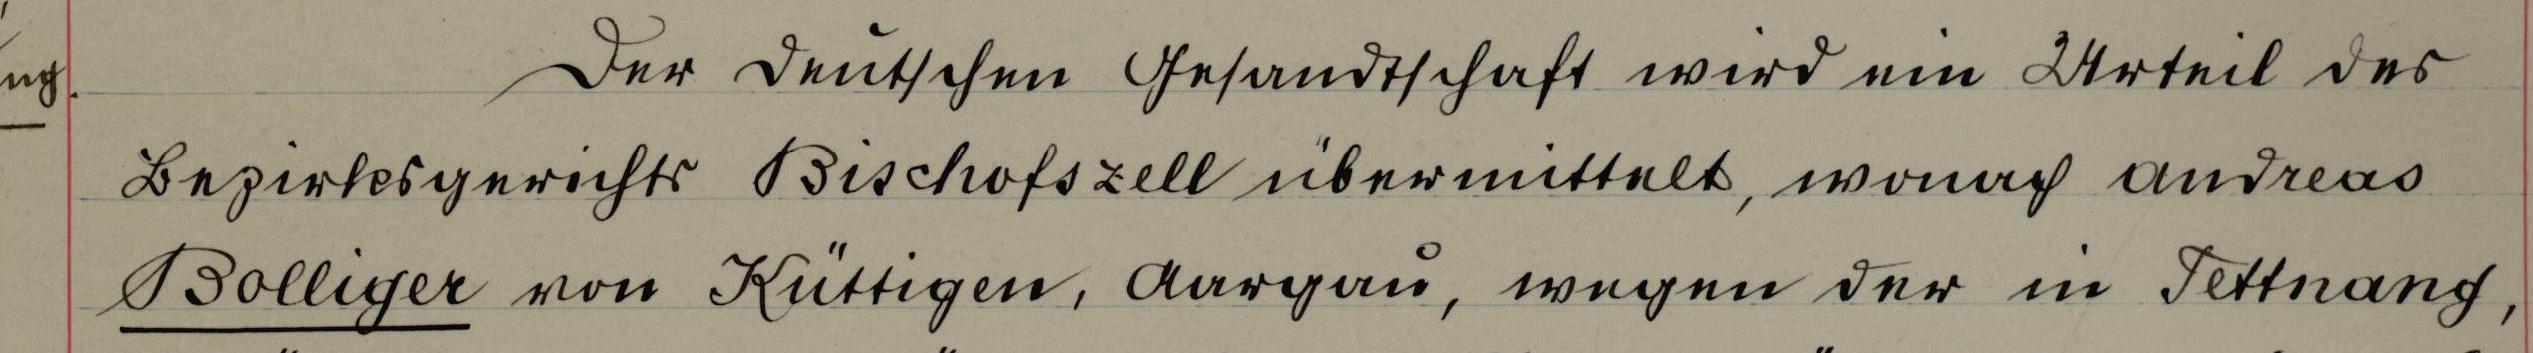 ng.
Der deutschen Gesandtschaft wird ein Urteil des
Bezirksgerichts Bischofszell übermittelt, wonach Andreas
Bolliger von Küttigen, Aargau, wegen der in Tettnang,